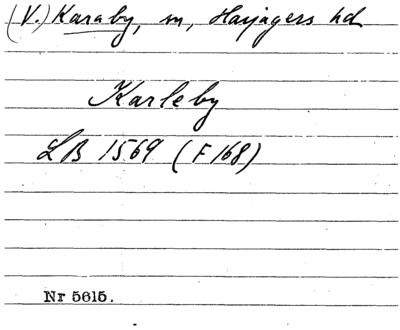 (V.) Karaby, sn, Harjagers hd
Karleby
LB 1569 (F 168)
Nr 5615.